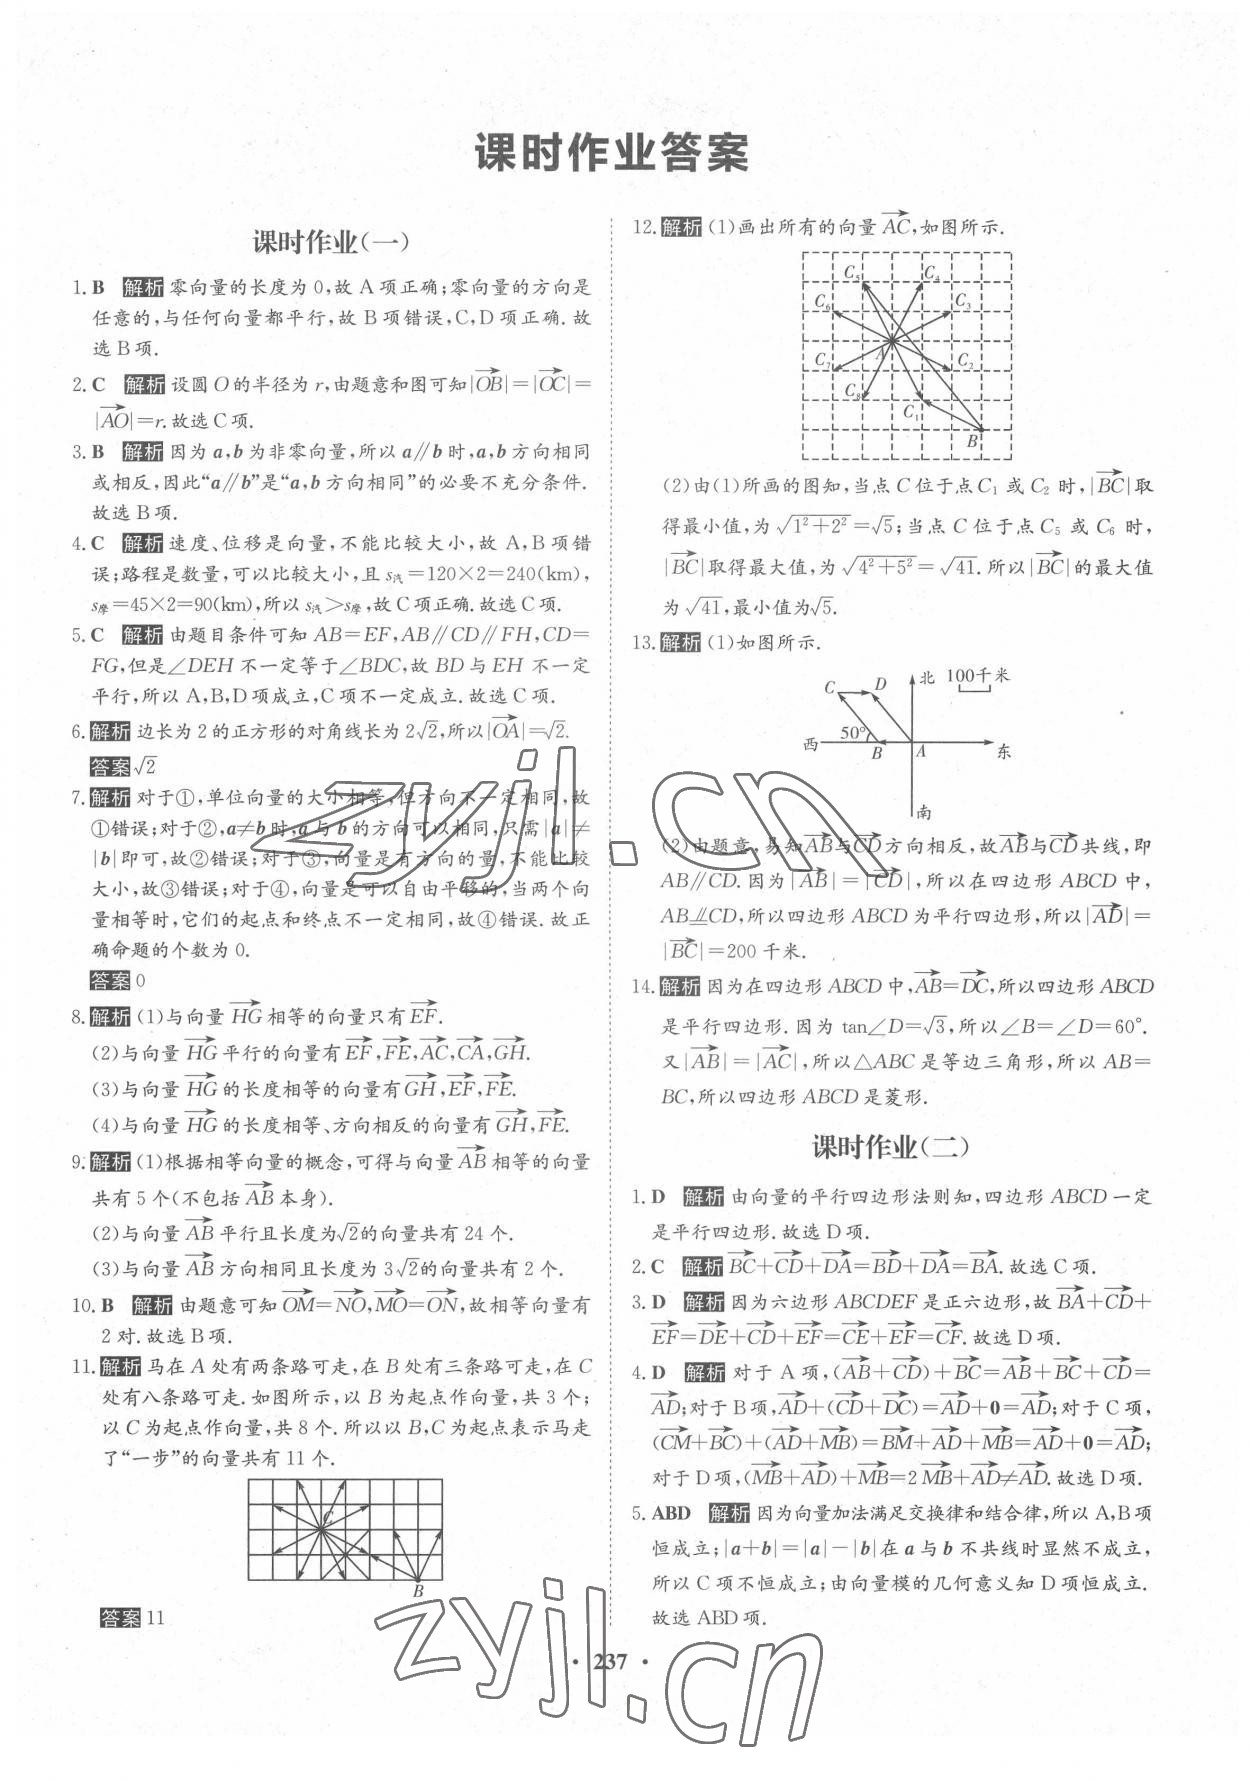 课时作业答案
课时作业(一)
1. B 解析 零向量的长度为 0,故 A 项正确;零向量的方向是
任意的,与任何向量都平行,故 B 项错误,C,D 项正确.故
选 B 项.
2. C 解析 设圆 O 的半径为 r,由题意和图可知|\overrightarrow{OB}|=|\overrightarrow{OC}|=
|\overrightarrow{AO}|=r.故选 C 项.
3. B 解析 因为 a,b 为非零向量,所以 a∥b 时,a,b 方向相同
或相反,因此“a∥b”是“a,b 方向相同”的必要不充分条件.
故选 B 项.
4. C 解析 速度、位移是向量,不能比较大小,故 A,B 项错
误;路程是数量,可以比较大小,且 s汽=120×2=240(km),
s摩=45×2=90(km),所以 s汽>s摩,故 C 项正确.故选 C 项.
5. C 解析 由题目条件可知 AB=EF,AB∥CD∥FH,CD=
FG,但是∠DEH 不一定等于∠BDC,故 BD 与 EH 不一定
平行,所以 A,B,D 项成立,C 项不一定成立.故选 C 项.
6. 解析 边长为 2 的正方形的对角线长为 2√2,所以|\overrightarrow{OA}|=√2.
答案 √2
7. 解析 对于①,单位向量的大小相等,但方向不一定相同,故
①错误;对于②,a≠b 时,a 与 b 的方向可以相同,只需|a|≠
|b|即可,故②错误;对于③,向量是有方向的量,不能比较
大小,故③错误;对于④,向量是可以自由平移的,当两个向
量相等时,它们的起点和终点不一定相同,故④错误.故正
确命题的个数为 0.
答案 0
8. 解析 (1)与向量 \overrightarrow{HG} 相等的向量只有 \overrightarrow{EF}.
(2)与向量 \overrightarrow{HG} 平行的向量有 \overrightarrow{EF},\overrightarrow{FE},\overrightarrow{AC},\overrightarrow{CA},\overrightarrow{GH}.
(3)与向量 \overrightarrow{HG} 的长度相等的向量有 \overrightarrow{GH},\overrightarrow{EF},\overrightarrow{FE}.
(4)与向量 \overrightarrow{HG} 的长度相等、方向相反的向量有 \overrightarrow{GH},\overrightarrow{FE}.
9. 解析 (1)根据相等向量的概念,可得与向量 \overrightarrow{AB} 相等的向量
共有 5 个(不包括 \overrightarrow{AB} 本身).
(2)与向量 \overrightarrow{AB} 平行且长度为√2的向量共有 24 个.
(3)与向量 \overrightarrow{AB} 方向相同且长度为 3√2的向量共有 2 个.
10. B 解析 由题意可知 \overrightarrow{OM}=\overrightarrow{NO},\overrightarrow{MO}=\overrightarrow{ON},故相等向量有
2 对.故选 B 项.
11. 解析 马在 A 处有两条路可走,在 B 处有三条路可走,在 C
处有八条路可走.如图所示,以 B 为起点作向量,共 3 个;
以 C 为起点作向量,共 8 个.所以以 B,C 为起点表示马走
了“一步”的向量共有 11 个.
C
B
答案 11
12. 解析 (1)画出所有的向量 \overrightarrow{AC},如图所示.
C5 C4
C6 C3
A
C7 C2
C8 C1
B
(2)由(1)所画的图知,当点 C 位于点 C1 或 C2 时,|\overrightarrow{BC}|取
得最小值,为 √(1²+2²)=√5;当点 C 位于点 C5 或 C6 时,
|\overrightarrow{BC}|取得最大值,为 √(4²+5²)=√41.所以|\overrightarrow{BC}|的最大值
为 √41,最小值为√5.
13. 解析 (1)如图所示.
北 100千米
C D
50°
西 B A 东
南
(2)由题意,易知\overrightarrow{AB}与\overrightarrow{CD}方向相反,故\overrightarrow{AB}与\overrightarrow{CD}共线,即
AB∥CD.因为|\overrightarrow{AB}|=|\overrightarrow{CD}|,所以在四边形 ABCD 中,
AB⫽CD,所以四边形 ABCD 为平行四边形,所以|\overrightarrow{AD}|=
|\overrightarrow{BC}|=200 千米.
14. 解析 因为在四边形 ABCD 中,\overrightarrow{AB}=\overrightarrow{DC},所以四边形 ABCD
是平行四边形.因为 tan∠D=√3,所以∠B=∠D=60°.
又|\overrightarrow{AB}|=|\overrightarrow{AC}|,所以△ABC 是等边三角形,所以 AB=
BC,所以四边形 ABCD 是菱形.
课时作业(二)
1. D 解析 由向量的平行四边形法则知,四边形 ABCD 一定
是平行四边形.故选 D 项.
2. C 解析 \overrightarrow{BC}+\overrightarrow{CD}+\overrightarrow{DA}=\overrightarrow{BD}+\overrightarrow{DA}=\overrightarrow{BA}.故选 C 项.
3. D 解析 因为六边形 ABCDEF 是正六边形,故 \overrightarrow{BA}+\overrightarrow{CD}+
\overrightarrow{EF}=\overrightarrow{DE}+\overrightarrow{CD}+\overrightarrow{EF}=\overrightarrow{CE}+\overrightarrow{EF}=\overrightarrow{CF}.故选 D 项.
4. D 解析 对于 A 项,(\overrightarrow{AB}+\overrightarrow{CD})+\overrightarrow{BC}=\overrightarrow{AB}+\overrightarrow{BC}+\overrightarrow{CD}=
\overrightarrow{AD};对于 B 项,\overrightarrow{AD}+(\overrightarrow{CD}+\overrightarrow{DC})=\overrightarrow{AD}+0=\overrightarrow{AD};对于 C 项,
(\overrightarrow{CM}+\overrightarrow{BC})+(\overrightarrow{AD}+\overrightarrow{MB})=\overrightarrow{BM}+\overrightarrow{AD}+\overrightarrow{MB}=\overrightarrow{AD}+0=\overrightarrow{AD};
对于 D 项,(\overrightarrow{MB}+\overrightarrow{AD})+\overrightarrow{MB}=2\overrightarrow{MB}+\overrightarrow{AD}≠\overrightarrow{AD}.故选 D 项.
5. ABD 解析 因为向量加法满足交换律和结合律,所以 A,B 项
恒成立;|a+b|=|a|-|b|在 a 与 b 不共线时显然不成立,
所以 C 项不恒成立;由向量模的几何意义知 D 项恒成立.
故选 ABD 项.
· 237 ·
zyjl.cn
zyjl.cn